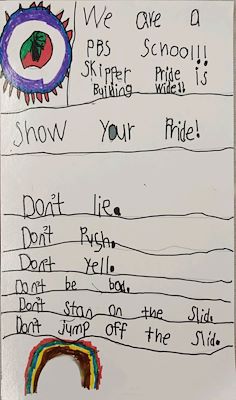 We are a
PBS School!!!
Skipper Pride is
Building wide!!
Show Your Pride!
Don't lie.
Don't Push.
Don't Yell.
Don't be bad.
Don't stan on the Slid.
Don't jump off the Slid.